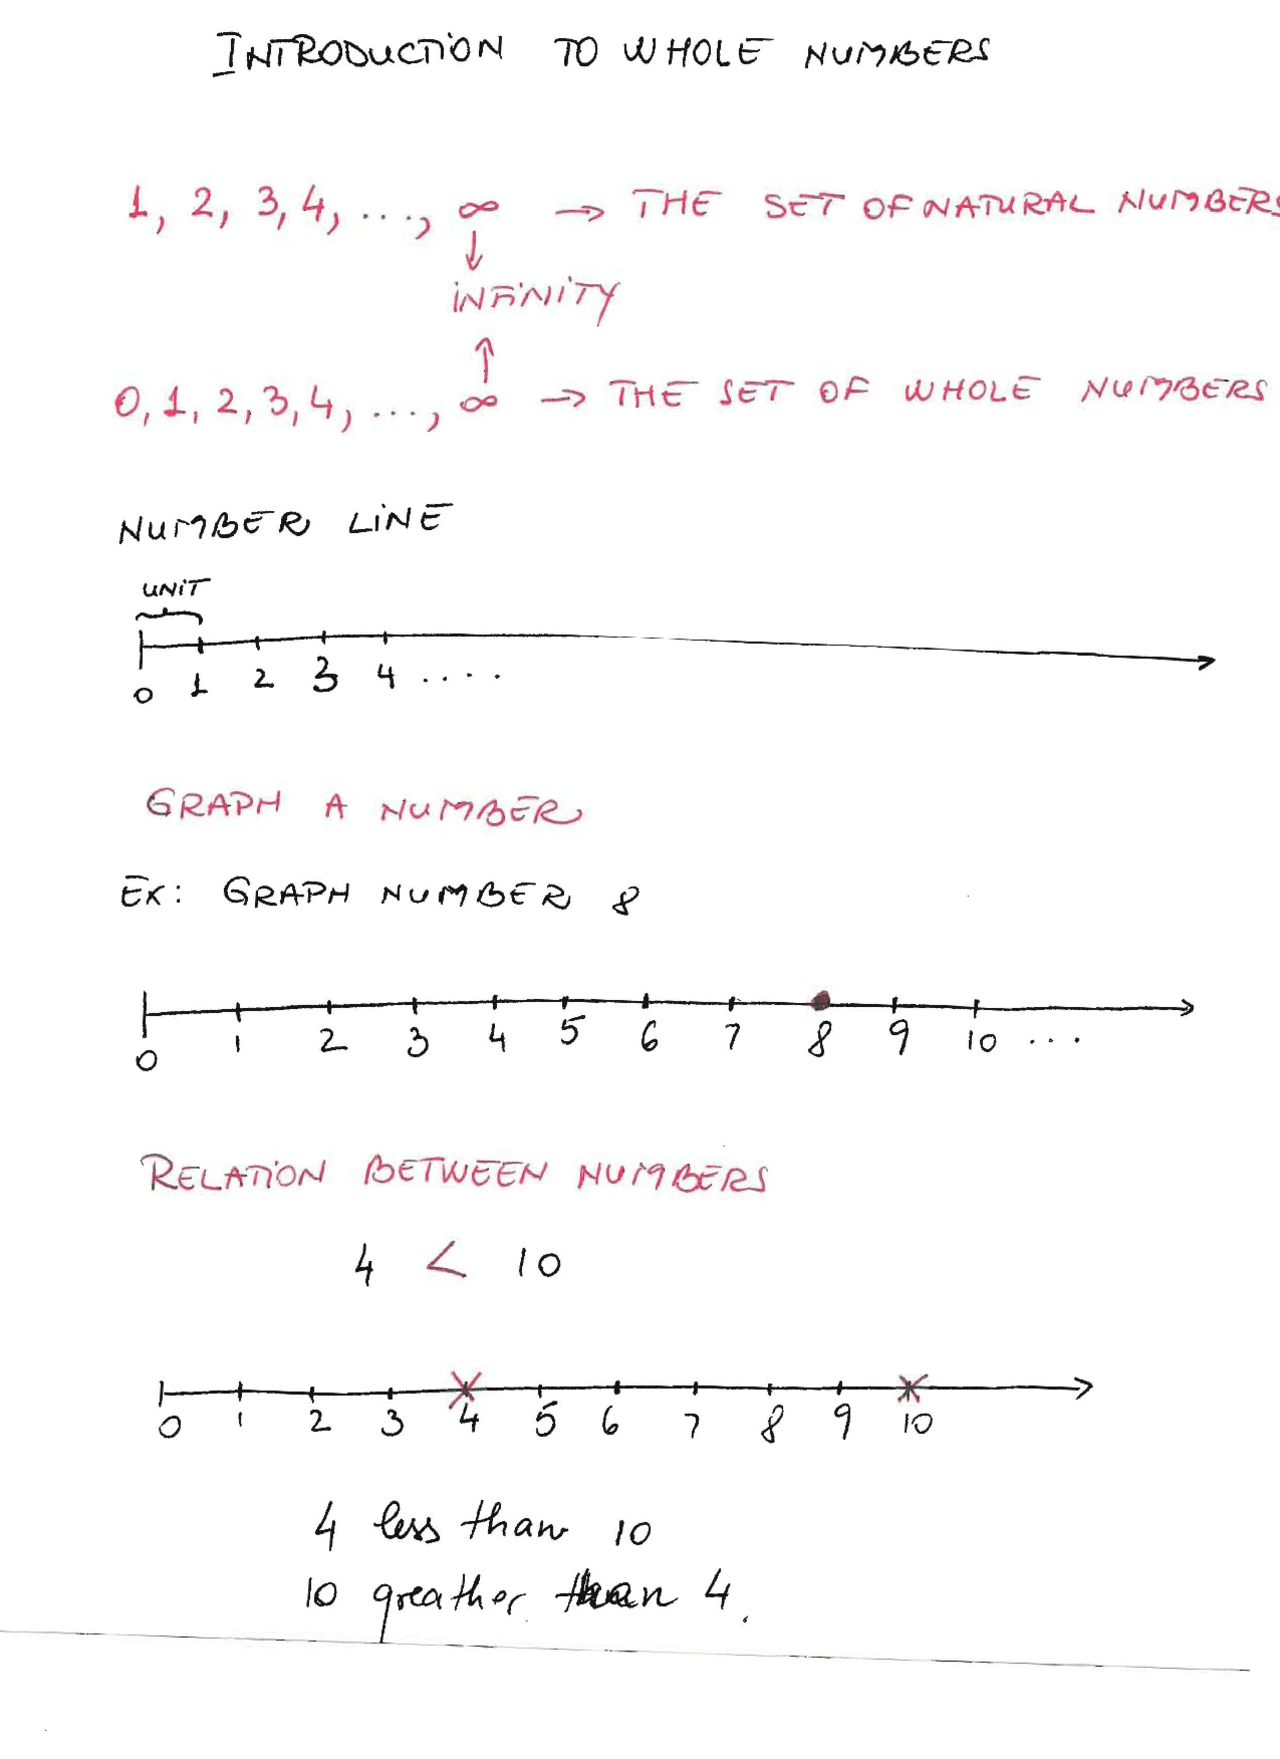 INTRODUCTION TO WHOLE NUMBERS
1, 2, 3, 4, ..., ∞ → THE SET OF NATURAL NUMBERS
↓
INFINITY
↑
0, 1, 2, 3, 4, ..., ∞ → THE SET OF WHOLE NUMBERS
NUMBER LINE
UNIT
0 1 2 3 4 ....
GRAPH A NUMBER
EX: GRAPH NUMBER 8
0 1 2 3 4 5 6 7 8 9 10 ...
RELATION BETWEEN NUMBERS
4 < 10
0 1 2 3 4 5 6 7 8 9 10
4 less than 10
10 greather than 4.